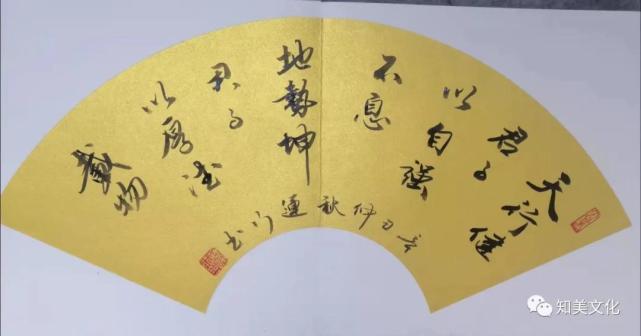 天行健
君子
以自强
不息
地势坤
君子
以厚德
载物
秋莲书
知美文化